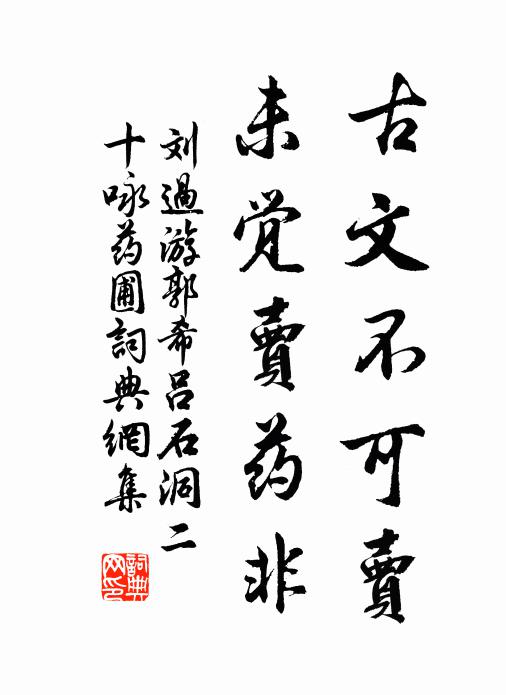 古文不可賣
未觉賣药非
刘過游郭希吕石洞二
十咏药圃詞典網集
詞典
网印